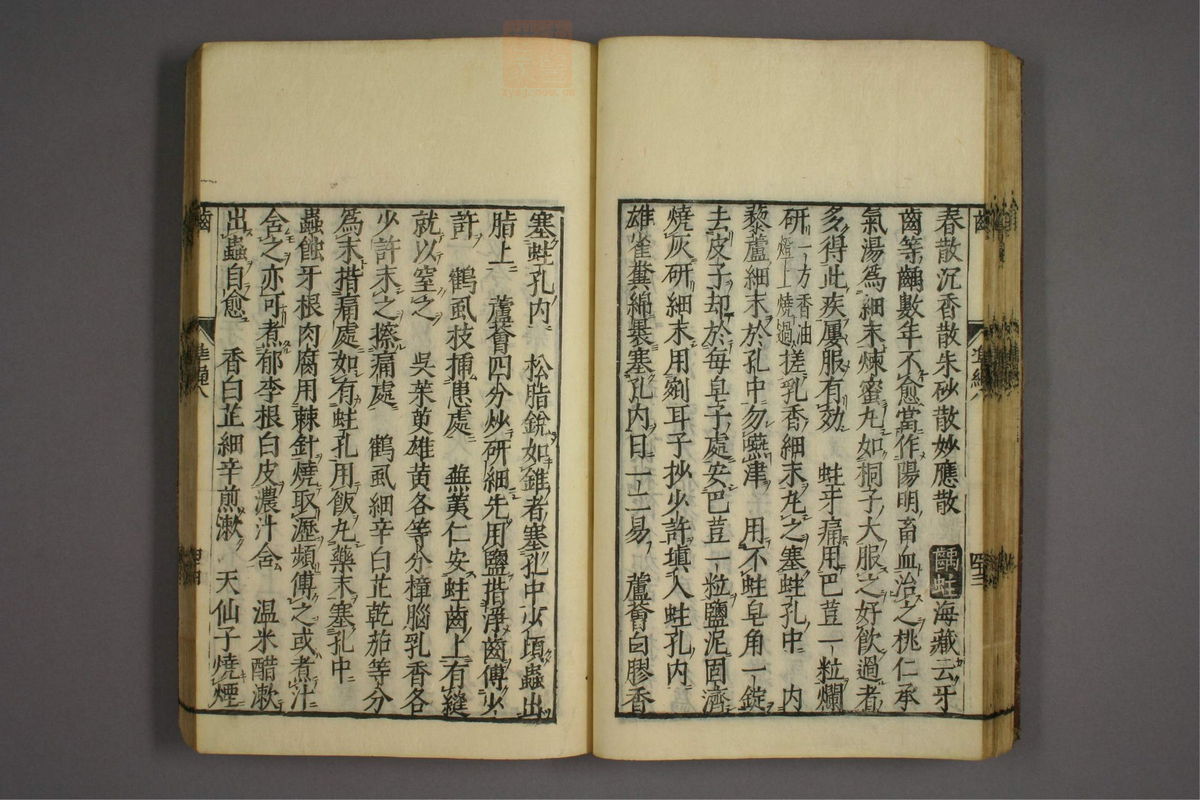 春散沉香散朱砂散妙應散 齲蛀海藏云牙
齒等齲數年不愈當作陽明畜血治之桃仁承
氣湯爲細末煉蜜丸如桐子大服之好飲過者
多得此疾屢服有効 蛀牙痛用巴荳一粒爛
研一方香油燈上燒過搓乳香細末丸之塞蛀孔中 內
藜蘆細末於孔中勿嚥津 用不蛀皂角一錠
去皮子却於每皂子處安巴荳一粒鹽泥固濟
燒灰研細末用剜耳子抄少許塡入蛀孔內
雄雀糞綿裹塞孔內日一二易 蘆薈白膠香
塞蛀孔內 松脂銳如錐者塞孔中少頃蟲出
脂上 蘆薈四分炒研細先用鹽揩淨齒傅少
許 鶴虱枝插患處 蕪荑仁安蛀齒上有縫
就以窒之 吳茱萸雄黃各等分樟腦乳香各
少許末之擦痛處 鶴虱細辛白芷乾茄等分
爲末揩痛處如有蛀孔用飯丸藥末塞孔中
蟲蝕牙根肉腐用棘針燒取瀝頻傅之或煮汁
含之亦可煮郁李根白皮濃汁含 溫米醋漱
出蟲自愈 香白芷細辛煎漱 天仙子燒煙
齒
準繩八
四十四
齒